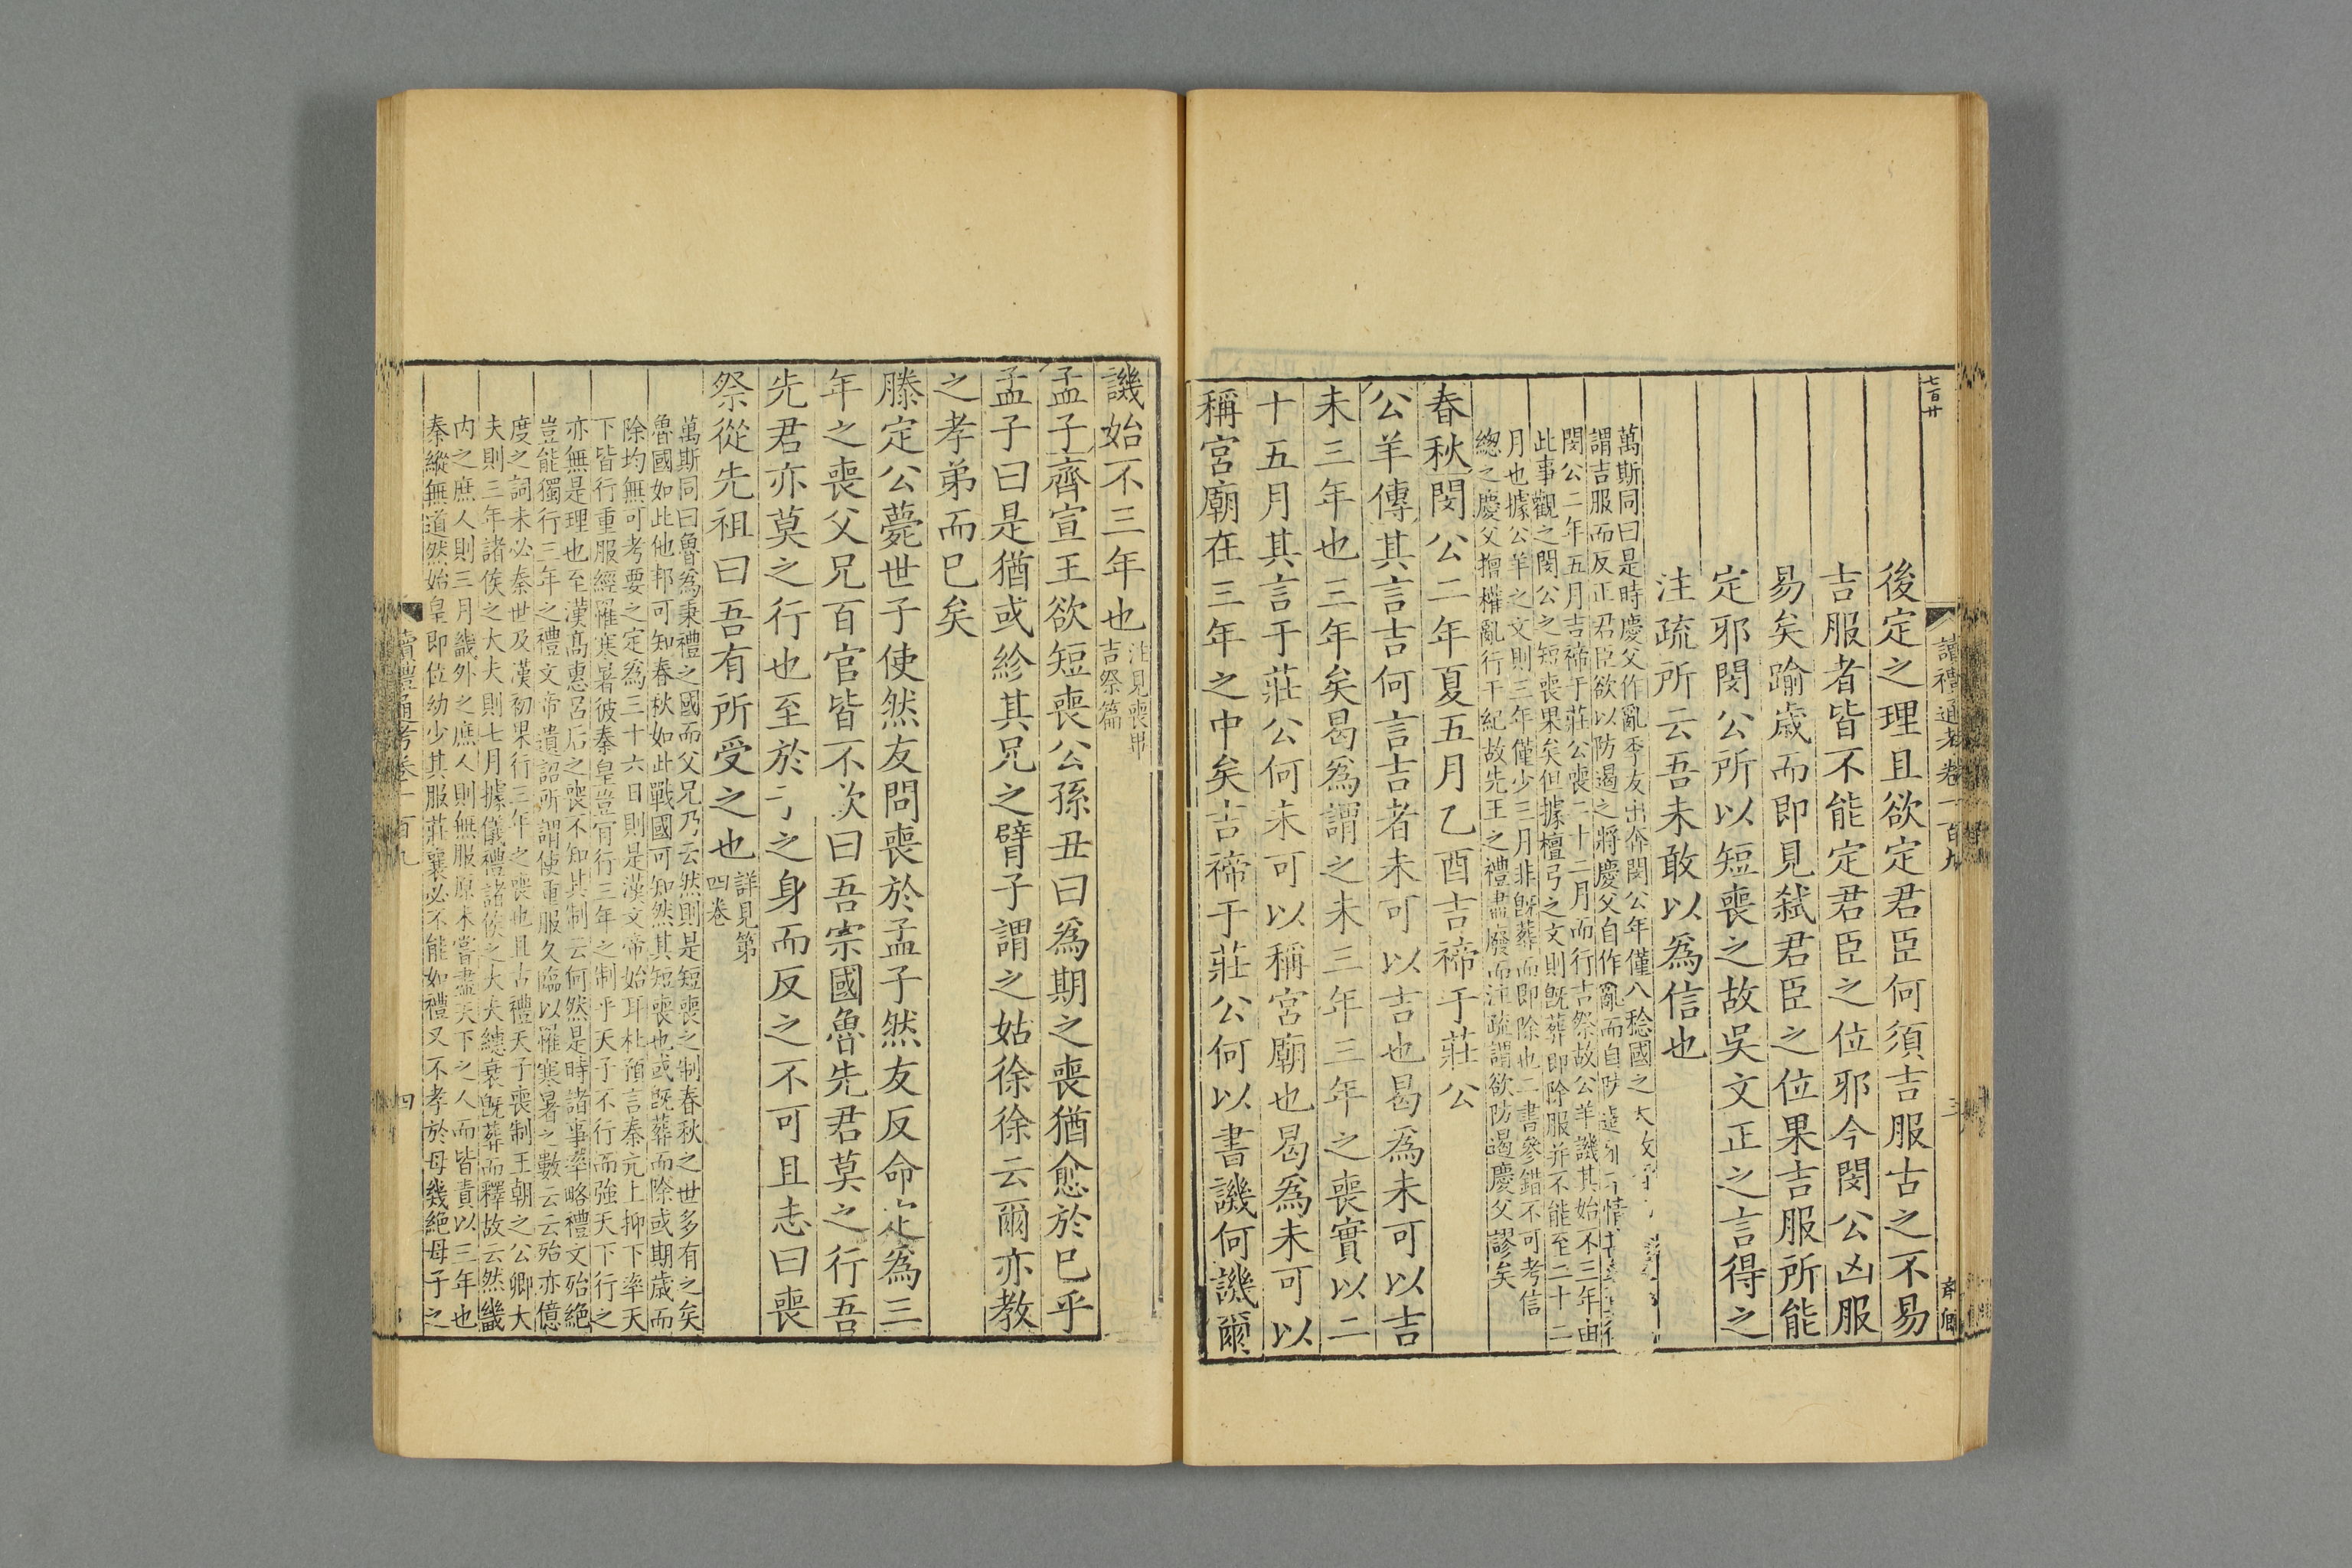 七百廿
讀禮通考卷一百九
三
後定之理且欲定君臣何須吉服古之不易
吉服者皆不能定君臣之位邪今閔公凶服
易矣踰歲而即見弑君臣之位果吉服所能
定邪閔公所以短喪之故吳文正之言得之
注疏所云吾未敢以為信也
萬斯同曰是時慶父作亂季友出奔閔公年僅八稔國之大
謂吉服而反正君臣欲以防遏之將慶父自作亂而自防
閔公二年五月吉禘于莊公喪二十二月而行吉祭故公羊譏其始不三年由
此事觀之閔公之短喪果矣但據檀弓之文則既葬即除服并不能至二十二
月也據公羊之文則三年僅少三月非既葬而即除也二書參錯不可考信
緫之慶父擅權亂行干紀故先王之禮盡廢而注疏謂欲防遏慶父謬矣
春秋閔公二年夏五月乙酉吉禘于莊公
公羊傳其言吉何言吉者未可以吉也曷為未可以吉
未三年也三年矣曷為謂之未三年三年之喪實以二
十五月其言于莊公何未可以稱宮廟也曷為未可以
稱宮廟在三年之中矣吉禘于莊公何以書譏何譏爾
譏始不三年也注見喪畢
吉祭篇
孟子齊宣王欲短喪公孫丑曰為期之喪猶愈於已乎
孟子曰是猶或紾其兄之臂子謂之姑徐徐云爾亦教
之孝弟而已矣
滕定公薨世子使然友問喪於孟子然友反命定為三
年之喪父兄百官皆不欲曰吾宗國魯先君莫之行吾
先君亦莫之行也至於之身而反之不可且志曰喪
祭從先祖曰吾有所受之也詳見第
四卷
萬斯同曰魯為秉禮之國而父兄乃云然則是短喪之制春秋之世多有之矣
魯國如此他邦可知春秋如此戰國可知然其短喪也或既葬而除或期歲而
除均無可考要之定為三十六日則是漢文帝始耳杜預言秦亢上抑下率天
下皆行重服經罹寒暑彼秦皇豈肯行三年之制乎天子不行而強天下行之
亦無是理也至漢高惠呂后之喪不知其制云何然是時諸事率略禮文殆絕
豈能獨行三年之禮文帝遺詔所謂使重服久臨以罹寒暑之數云云殆亦億
度之詞未必秦世及漢初果行三年之喪也且古禮天子喪制王朝之公卿大
夫則三年諸侯之大夫則七月據儀禮諸侯之大夫繐衰既葬而釋故云然畿
內之庶人則三月畿外之庶人則無服原未嘗盡天下之人而皆責以三年也
秦縱無道然始皇即位幼少其服莊襄必不能如禮又不孝於母幾絕母子之
讀禮通考卷一百九
四